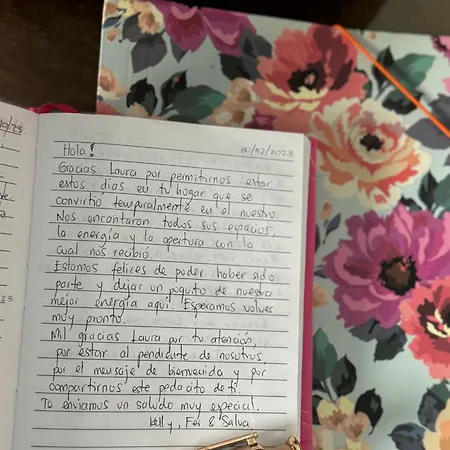 30/12/2023
Hola!
Gracias Laura por permitirnos estar
estos días en tu hogar que se
convirtió temporalmente en el nuestro.
Nos encantaron todos sus espacios,
la energía y la apertura con la
cual nos recibió.
Estamos felices de poder haber sido
parte y dejar un poquito de nuestra
mejor energía aquí. Esperamos volver
muy pronto.
Mil gracias Laura por tu atención,
por estar al pendiente de nosotros,
por el mensaje de bienvenida y por
compartirnos este pedacito de ti.
Te enviamos un saludo muy especial.
Kelly, Fer & Salva